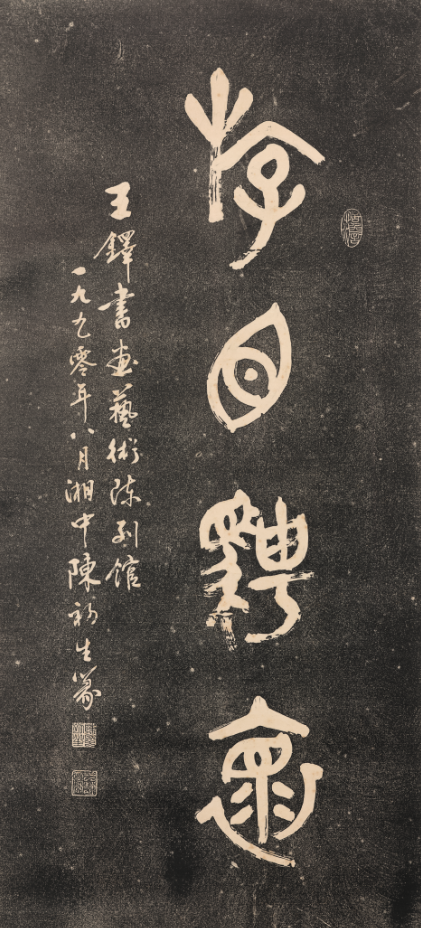 斿目騁褱
王鐸書畫藝術陳列館
一九九零年八月湘中陳初生篆